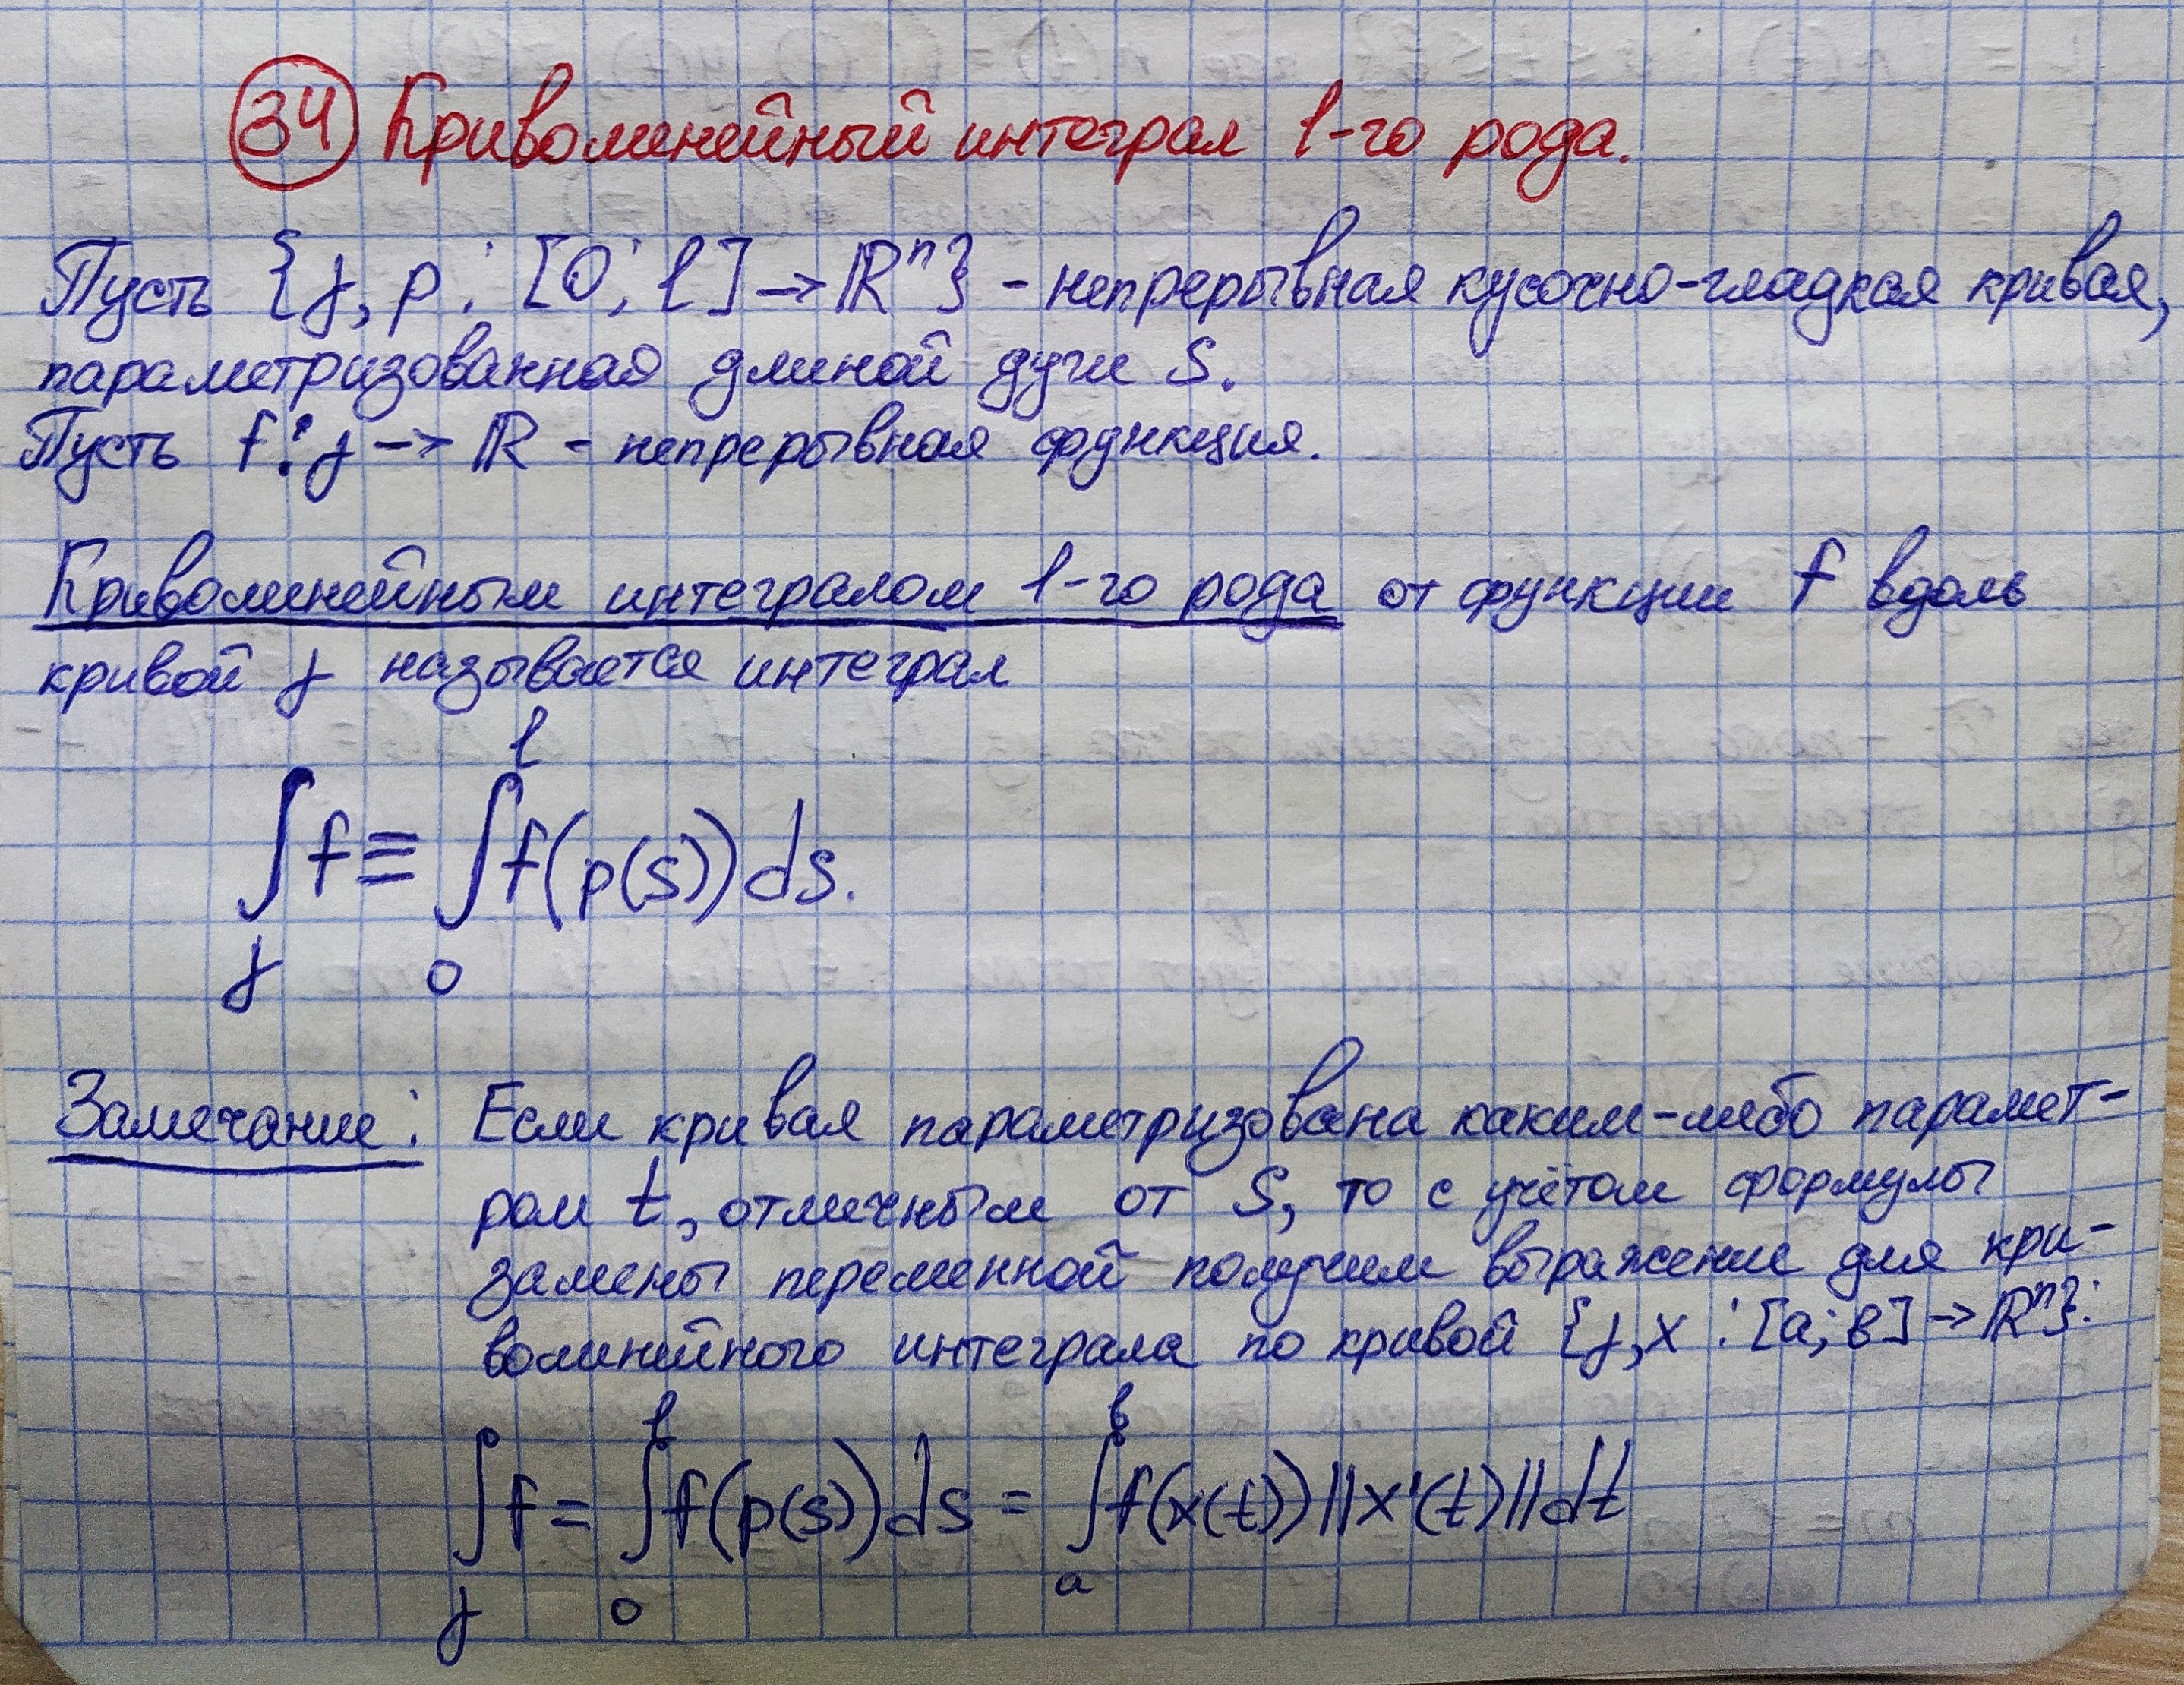 34 Криволинейный интеграл 1-го рода.
Пусть {γ, p : [0; l] → ℝⁿ} - непрерывная кусочно-гладкая кривая,
параметризованная длиной дуги S.
Пусть f : γ → ℝ - непрерывная функция.
Криволинейным интегралом 1-го рода от функции f вдоль
кривой γ называется интеграл
∫_γ f ≡ ∫_0^l f(p(s)) ds.
Замечание: Если кривая параметризована каким-либо парамет-
ром t, отличным от S, то с учётом формулы
замены переменной получим выражение для кри-
волинейного интеграла по кривой {γ, x : [a; в] → ℝⁿ}:
∫_γ f = ∫_0^l f(p(s)) ds = ∫_a^в f(x(t)) ||x'(t)|| dt